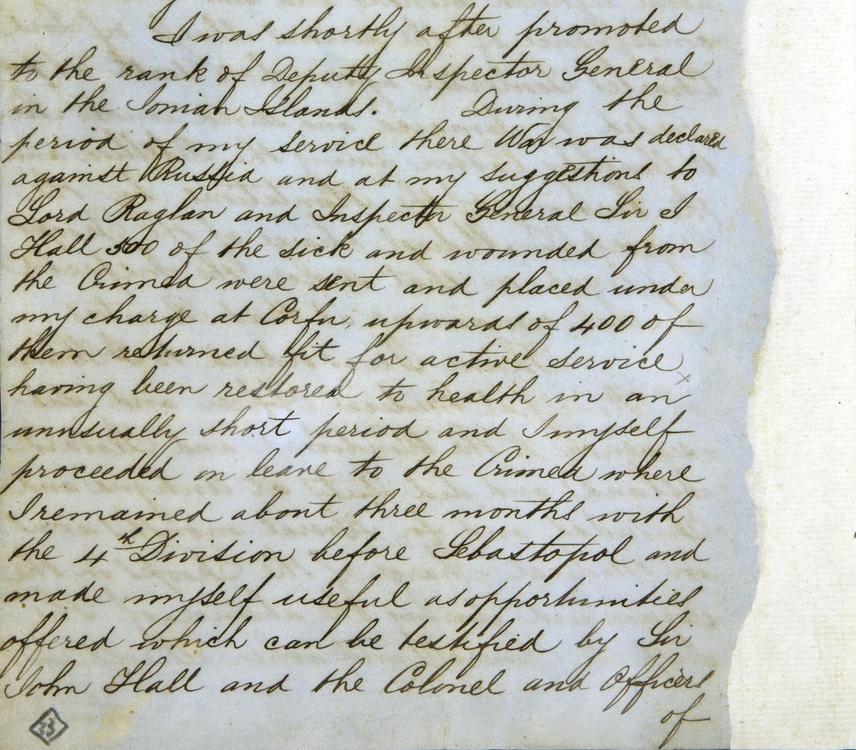 I was shortly after promoted
to the rank of Deputy Inspector General
in the Ionian Islands. During the
period of my service there War was declared
against Russia and at my suggestions to
Lord Raglan and Inspector General Sir J
Hall 500 of the sick and wounded from
the Crimea were sent and placed under
my charge at Corfu, upwards of 400 of
them returned fit for active service
having been restored to health in an
unusually short period and I myself
proceeded on leave to the Crimea where
I remained about three months with
the 4th Division before Sebastopol and
made myself useful as opportunities
offered which can be testified by Sir
John Hall and the Colonel and Officers
of